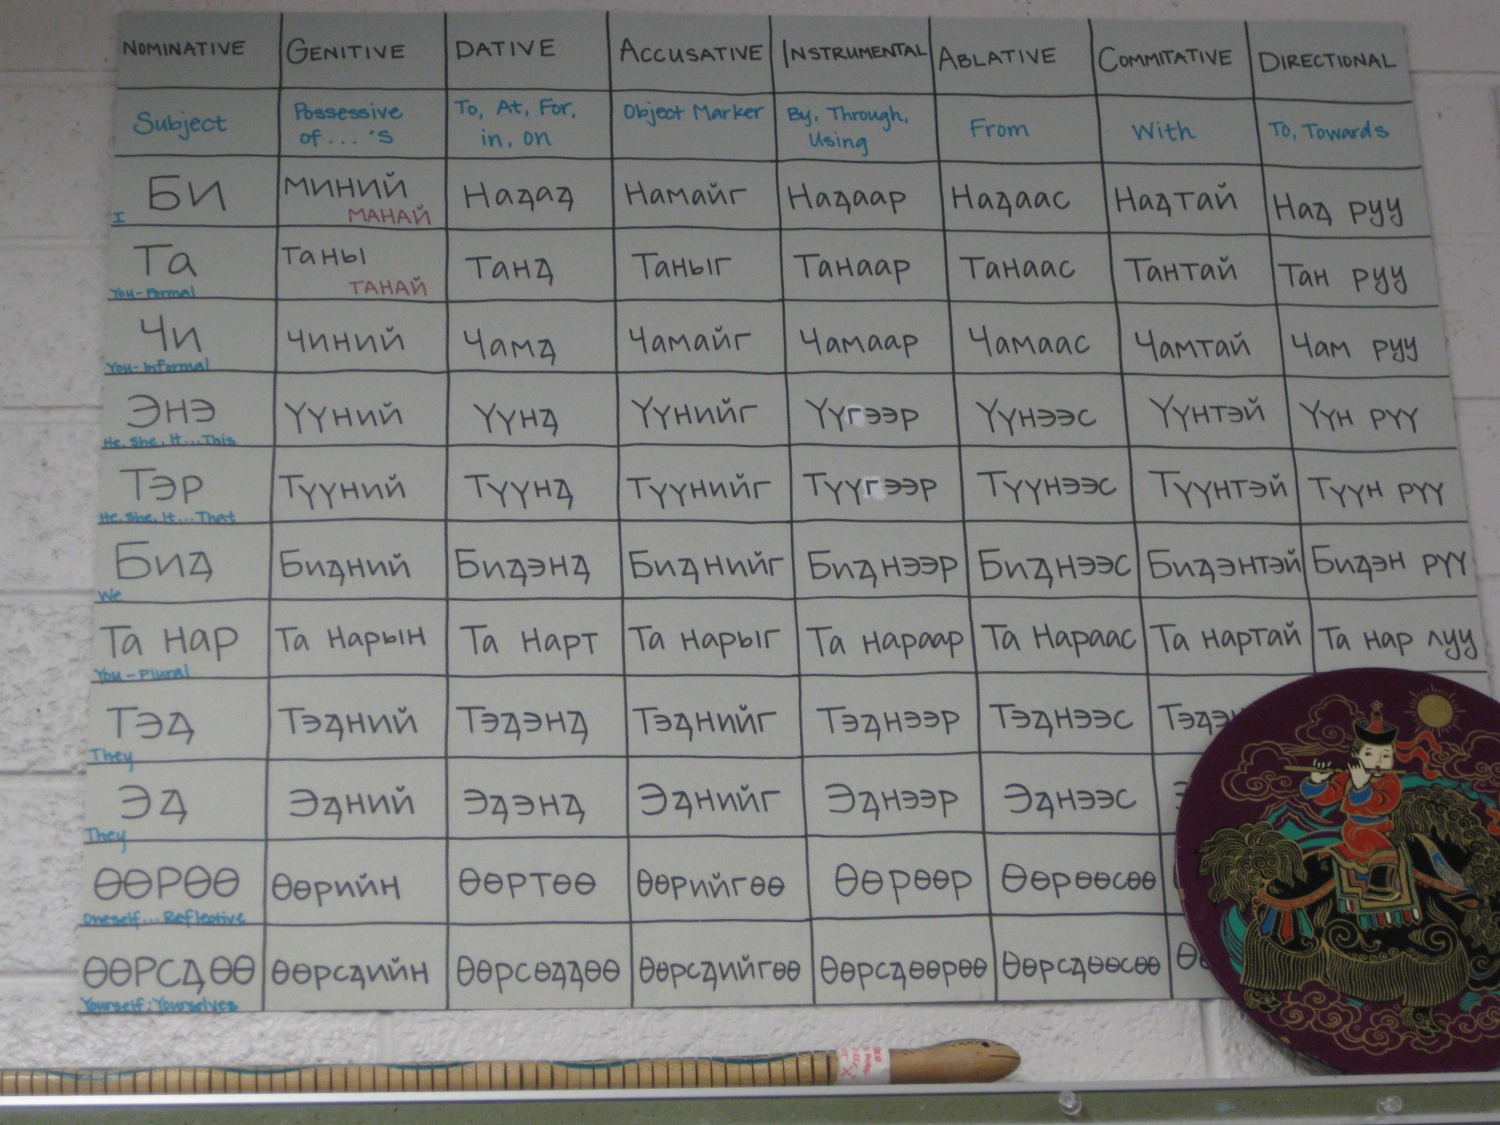 NOMINATIVE GENITIVE DATIVE ACCUSATIVE INSTRUMENTAL ABLATIVE COMMITATIVE DIRECTIONAL
Subject Possessive of... 's To, At, For, in, on Object Marker By, Through, Using From With To, Towards
БИ МИНИЙ МАНАЙ Надад Намайг Надаар Надаас Надтай Над руу
I
Та Таны ТАНАЙ Танд Таныг Танаар Танаас Тантай Тан руу
You-Formal
Чи Чиний Чамд Чамайг Чамаар Чамаас Чамтай Чам руу
You-Informal
Энэ Үүний Үүнд Үүнийг Үүгээр Үүнээс Үүнтэй Үүн рүү
He, She, It...This
Тэр Түүний Түүнд Түүнийг Түүгээр Түүнээс Түүнтэй Түүн рүү
He, She, It...That
Бид Бидний Бидэнд Биднийг Биднээр Биднээс Бидэнтэй Бидэн рүү
We
Та нар Та нарын Та нарт Та нарыг Та нараар Та нараас Та нартай Та нар луу
You-Plural
Тэд Тэдний Тэдэнд Тэднийг Тэднээр Тэднээс Тэдэн
They
Эд Эдний Эдэнд Эднийг Эднээр Эднээс
They
Өөрөө Өөрийн Өөртөө Өөрийгөө Өөрөөр Өөрөөсөө
Oneself...Reflective
Өөрсдөө Өөрсдийн Өөрсөддөө Өөрсдийгөө Өөрсдөөрөө Өөрсдөөсөө Өө
Yourself; Yourselves